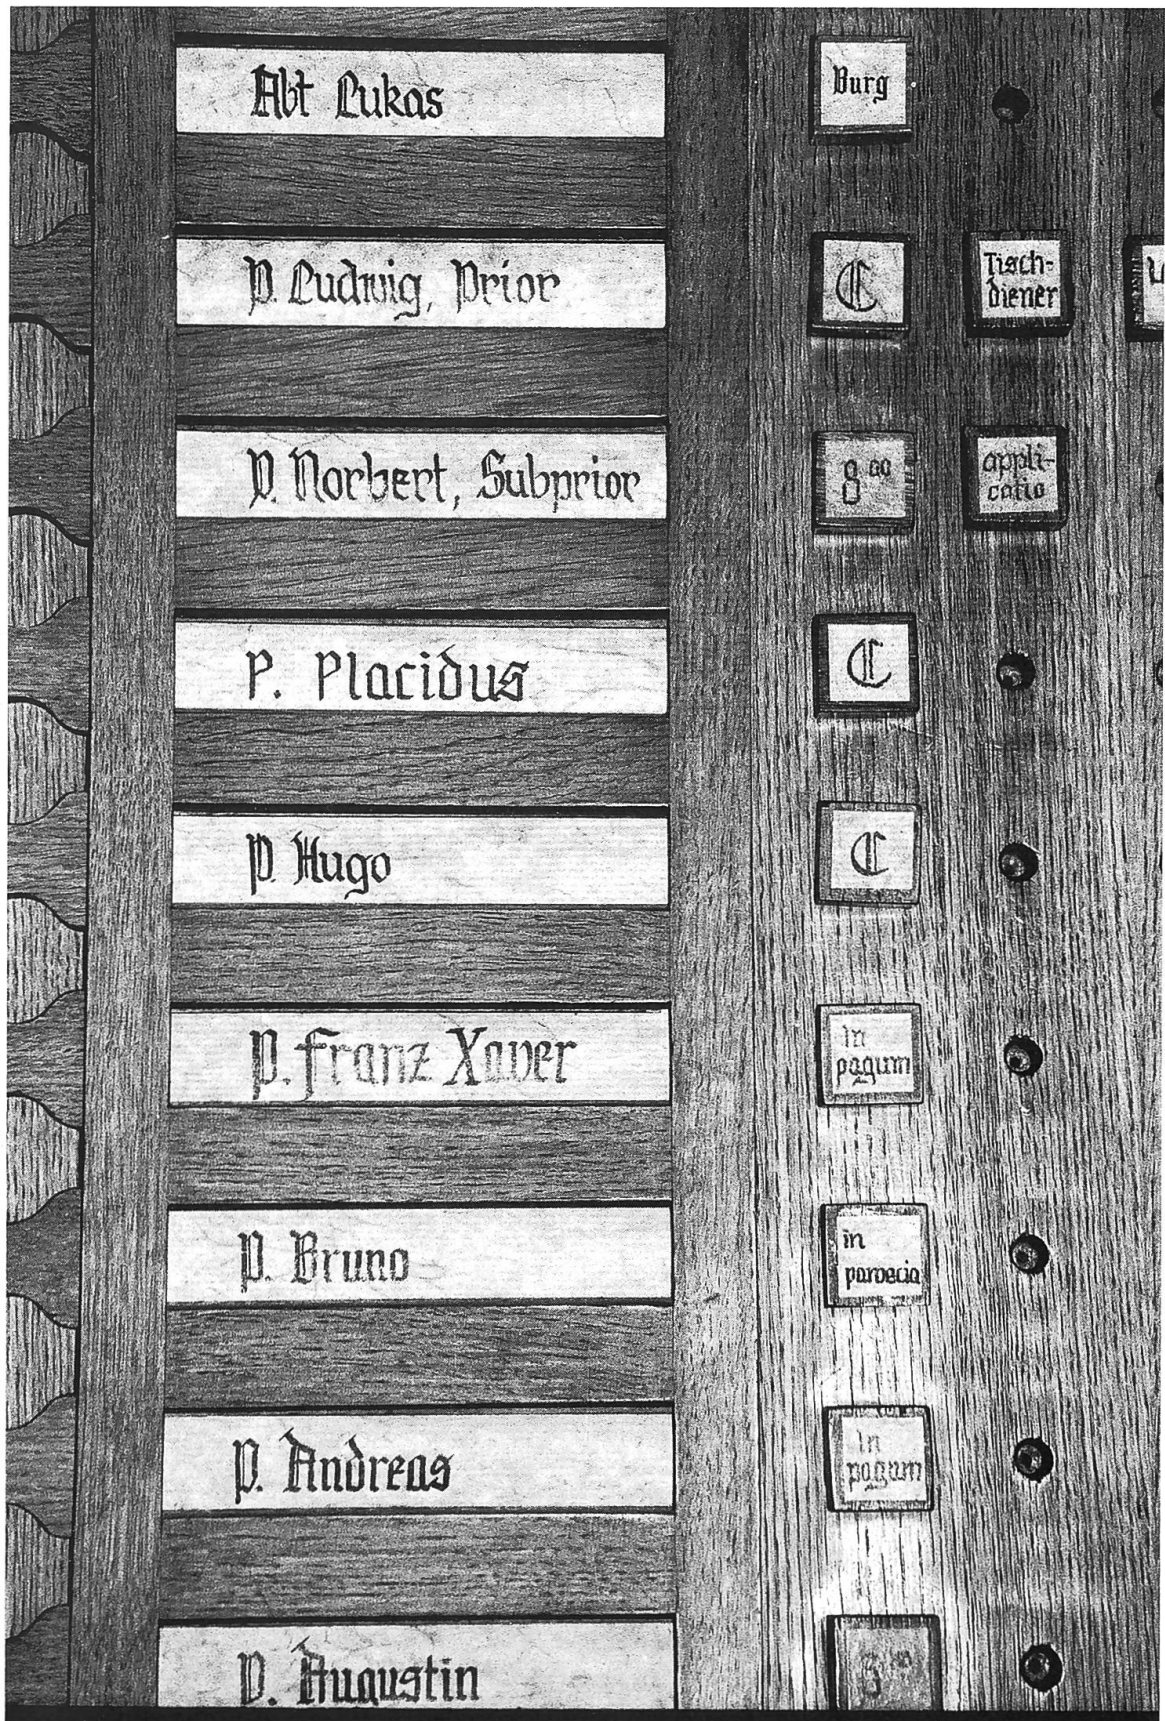 Abt Lukas
Burg
P. Ludwig, Prior
C
Tisch-
diener
P. Norbert, Subprior
8⁰⁰
appli-
catio
P. Placidus
C
P. Hugo
C
P. Franz Xaver
in
pagum
P. Bruno
in
paroecia
P. Andreas
in
pagum
P. Augustin